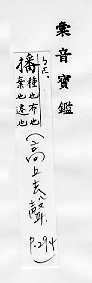 彙音寶鑑
播
種也布也
棄也遠也
(高上去聲
P.294)